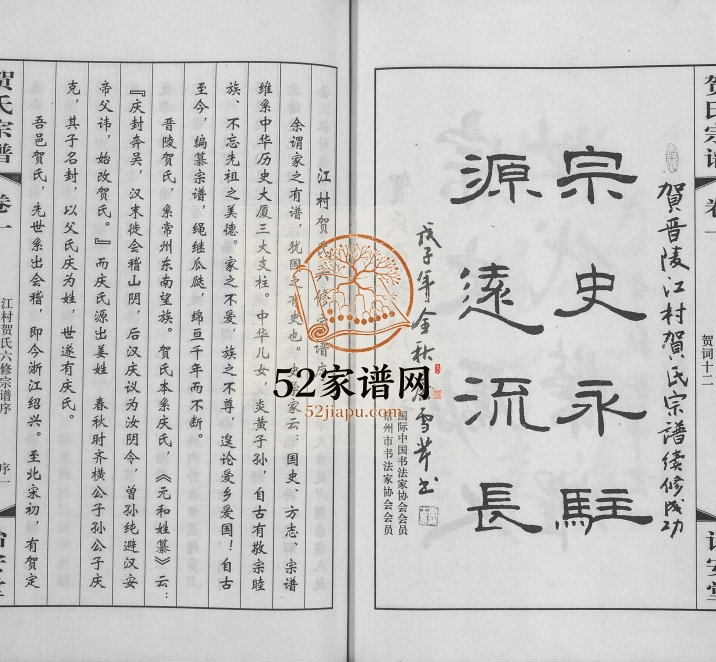 贺氏宗谱 卷一 贺词十二
賀晋陵江村賀氏宗譜續修成功
宗史永駐
源遠流長
戊子年金秋 雪芹书
国际中国书法家协会会员
常州市书法家协会会员
江村贺氏六修宗谱序
余谓家之有谱，犹国之有史也。家云：国史、方志、宗谱
维系中华历史大厦三大支柱。中华儿女，炎黄子孙，自古有敬宗睦
族、不忘先祖之美德。家之不爱，族之不尊，遑论爱乡爱国！自古
至今，编纂宗谱，绳继瓜瓞，绵亘千年而不断。
晋陵贺氏，系常州东南望族。贺氏本系庆氏，《元和姓纂》云：
『庆封奔吴，汉末徙会稽山阴，后汉庆议为汝阴令，曾孙纯避汉安
帝父讳，始改贺氏。』而庆氏源出姜姓 春秋时齐横公子孙公子庆
克，其子名封，以父氏庆为姓，世遂有庆氏。
吾邑贺氏，先世系出会稽，即今浙江绍兴。至北宋初，有贺定
贺氏宗谱 卷一 江村贺氏六修宗谱序 序一
52家谱网
52jiapu.com